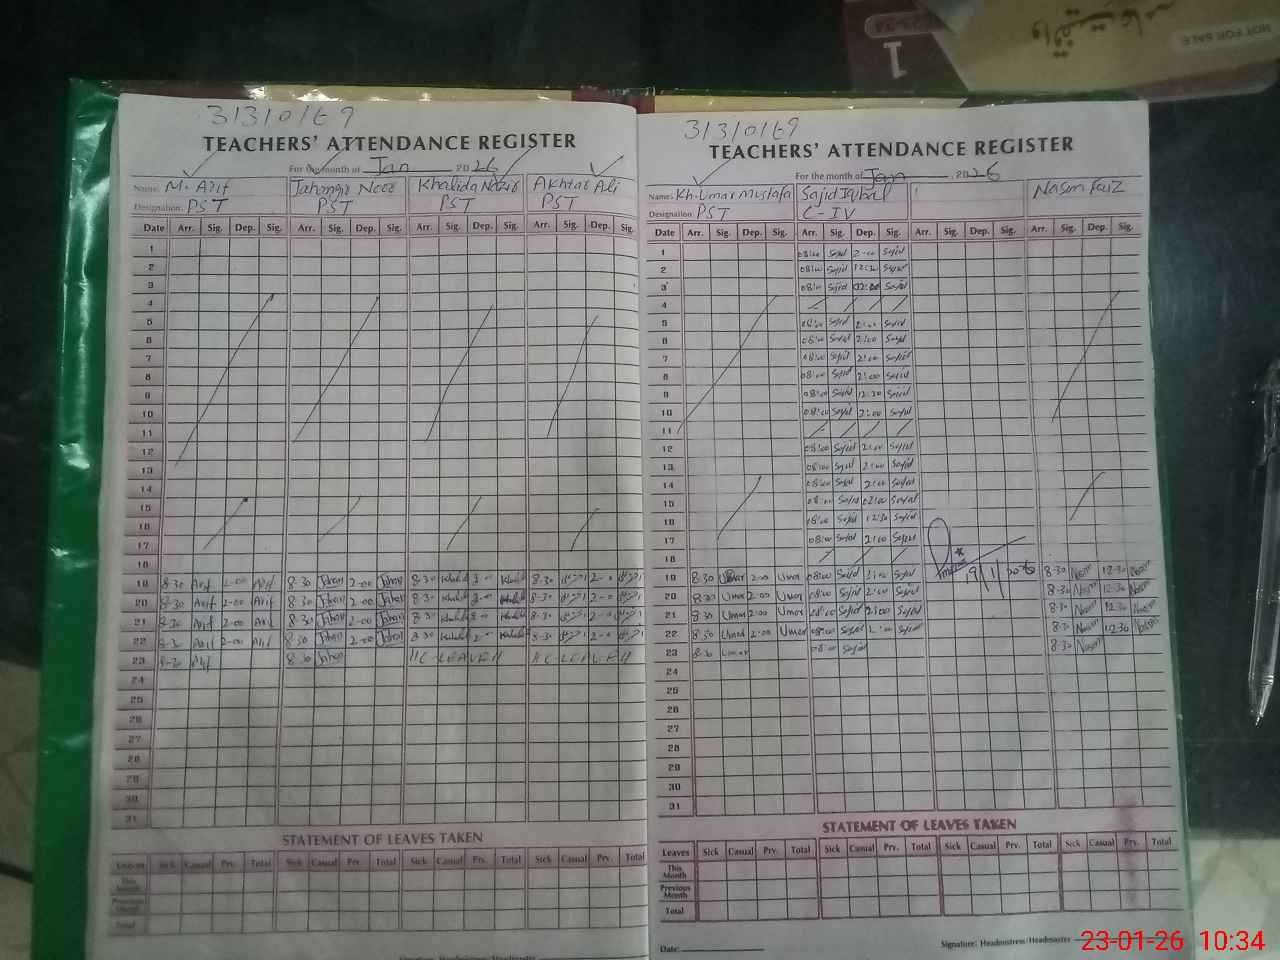 1
NOT FOR SALE
31310169
TEACHERS' ATTENDANCE REGISTER
For the month of Jan 2026
Name: M. Arif Jahangir Neer Khalida Nazir Akhtar Ali
Designation: PST PST PST PST
Date Arr. Sig. Dep. Sig. Arr. Sig. Dep. Sig. Arr. Sig. Dep. Sig. Arr. Sig. Dep. Sig.
1
2
3
4
5
6
7
8
9
10
11
12
13
14
15
16
17
18
19 8-30 Arif 2-00 Arif 8-30 Jahan 2-00 Jahan 8-30 Khalid 2-00 Khalid 8-30 2-00
20 8-30 Arif 2-00 Arif 8-30 Jahan 2-00 Jahan 8-30 Khalid 2-00 Khalid 8-30 2-00
21 8-30 Arif 2-00 Arif 8-30 Jahan 2-00 Jahan 8-30 Khalid 2-00 Khalid 8-30 2-00
22 8-30 Arif 2-00 Arif 8-30 Jahan 2-00 Jahan 8-30 Khalid 2-00 Khalid 8-30 2-00
23 8-30 Arif 8-30 Jahan //C-LEAVE// //C-LEAVE//
24
25
26
27
28
29
30
31
STATEMENT OF LEAVES TAKEN
Leaves Sick Casual Prv. Total Sick Casual Prv. Total Sick Casual Prv. Total Sick Casual Prv. Total
This Month
Previous Month
Total
31310169
TEACHERS' ATTENDANCE REGISTER
For the month of Jan, 2026
Name: Kh. Umar Mustafa Sajid Iqbal Nasim Faiz
Designation PST C-IV
Date Arr. Sig. Dep. Sig. Arr. Sig. Dep. Sig. Arr. Sig. Dep. Sig. Arr. Sig. Dep. Sig.
1 08:00 Sajid 2:00 Sajid
2 08:00 Sajid 12:30 Sajid
3 08:00 Sajid 02:00 Sajid
4
5 08:00 Sajid 2:00 Sajid
6 08:00 Sajid 2:00 Sajid
7 08:00 Sajid 2:00 Sajid
8 08:00 Sajid 2:00 Sajid
9 08:00 Sajid 12:30 Sajid
10 08:00 Sajid 2:00 Sajid
11
12 08:00 Sajid 2:00 Sajid
13 08:00 Sajid 2:00 Sajid
14 08:00 Sajid 2:00 Sajid
15 08:00 Sajid 02:00 Sajid
16 08:00 Sajid 12:30 Sajid
17 08:00 Sajid 2:00 Sajid
18
19 8:30 Umar 2:00 Umar 08:00 Sajid 2:00 Sajid 19/1/2026 8-30 Nasim 12-30 Nasim
20 8:30 Umar 2:00 Umar 08:00 Sajid 2:00 Sajid 8-30 Nasim 12-30 Nasim
21 8:30 Umar 2:00 Umar 08:00 Sajid 2:00 Sajid 8-30 Nasim 12-30 Nasim
22 8:30 Umar 2:00 Umar 08:00 Sajid 2:00 Sajid 8-30 Nasim 12-30 Nasim
23 8-30 Umar 08:00 Sajid 8-30 Nasim
24
25
26
27
28
29
30
31
STATEMENT OF LEAVES TAKEN
Leaves Sick Casual Prv. Total Sick Casual Prv. Total Sick Casual Prv. Total Sick Casual Prv. Total
This Month
Previous Month
Total
Date:
Signature: Headmistress/Headmaster
23-01-26 10:34